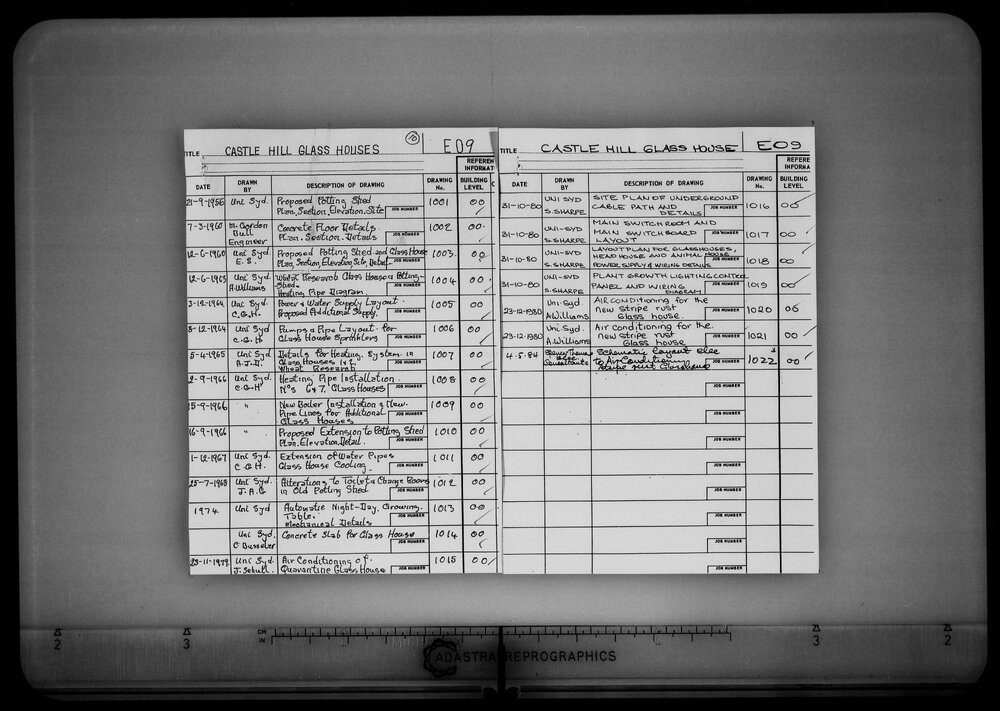 TITLE CASTLE HILL GLASS HOUSES E09
REFEREN
INFORMAT
DATE DRAWN BY DESCRIPTION OF DRAWING DRAWING No. BUILDING LEVEL
21-9-1956 Uni Syd. Proposed Potting Shed 1001 00
Plan, Section, Elevation, Site JOB NUMBER
7-3-1960 M. Gordon Concrete Floor Details. 1002 00
Bull Plan. Section. Details JOB NUMBER
Engineer
12-6-1960 Uni Syd Proposed Potting Shed and Glass House 1003 00
E.S. Plan, Section, Elevation, Site, Detail JOB NUMBER
12-6-1963 Uni Syd Wheat Research Glass House & Potting- 1004 00
A.Williams Shed. JOB NUMBER
Heating Pipe Diagram
3-12-1964 Uni Syd. Power & Water Supply Layout. 1005 00
C.G.H. Proposed Additional Supply. JOB NUMBER
8-12-1964 Uni Syd Pumps & Pipe Layout for 1006 00
C.G.H Glass House Sprinklers JOB NUMBER
5-4-1965 Uni Syd Details for Heating System in 1007 00
A.J.D. Glass Houses 1 & 2 JOB NUMBER
Wheat Research
2-9-1966 Uni Syd. Heating Pipe Installation 1008 00
C.G.H Nos 6 & 7, Glass Houses JOB NUMBER
15-9-1966 " New Boiler Installation & New 1009 00
Pipe Lines for Additional JOB NUMBER
Glass Houses
16-9-1966 " Proposed Extension to Potting Shed 1010 00
Plan, Elevation, Detail. JOB NUMBER
1-12-1967 Uni Syd. Extension of Water Pipes 1011 00
C.G.H. Glass House Cooling JOB NUMBER
25-7-1968 Uni Syd Alterations to Toilet & Change Room 1012 00
J.A.G in Old Potting Shed JOB NUMBER
1974 Uni Syd Automatic Night-Day, Growing 1013 00
Table. JOB NUMBER
Mechanical Details
Uni Syd. Concrete Slab for Glass House 1014 00
JOB NUMBER
23-11-1979 Uni Syd. Air Conditioning of 1015 00
Quarantine Glass House JOB NUMBER
TITLE CASTLE HILL GLASS HOUSE E09
REFERE
INFORMA
DATE DRAWN BY DESCRIPTION OF DRAWING DRAWING No. BUILDING LEVEL
31-10-80 UNI SYD SITE PLAN OF UNDERGROUND 1016 00
S.SHARPE CABLE PATH AND JOB NUMBER
DETAILS
31-10-80 UNI-SYD MAIN SWITCHROOM AND 1017 00
S.SHARPE MAIN SWITCHBOARD JOB NUMBER
LAYOUT
31-10-80 UNI-SYD LAYOUT PLAN FOR GLASSHOUSES, 1018 00
S.SHARPE HEADHOUSE AND ANIMAL HOUSE JOB NUMBER
POWER SUPPLY & WIRING DETAILS
31-10-80 UNI-SYD PLANT GROWTH LIGHTING CONTROL 1019 00
S.SHARPE PANEL AND WIRING JOB NUMBER
DIAGRAM
23-12-1980 Uni-Syd AIR CONDITIONING for the 1020 06
A.Williams new stripe rust JOB NUMBER
Glass house.
23-12-1980 Uni-Syd. Air conditioning for the 1021 00
A.Williams new stripe rust JOB NUMBER
Glass house
4.5.84 Schematic layout elec 1022 00
Consultants to Air Conditioning JOB NUMBER
Stripe rust Glasshouse
JOB NUMBER
JOB NUMBER
JOB NUMBER
JOB NUMBER
JOB NUMBER
JOB NUMBER
JOB NUMBER
JOB NUMBER
2 3 CM IN 3 2
ADASTRA REPROGRAPHICS